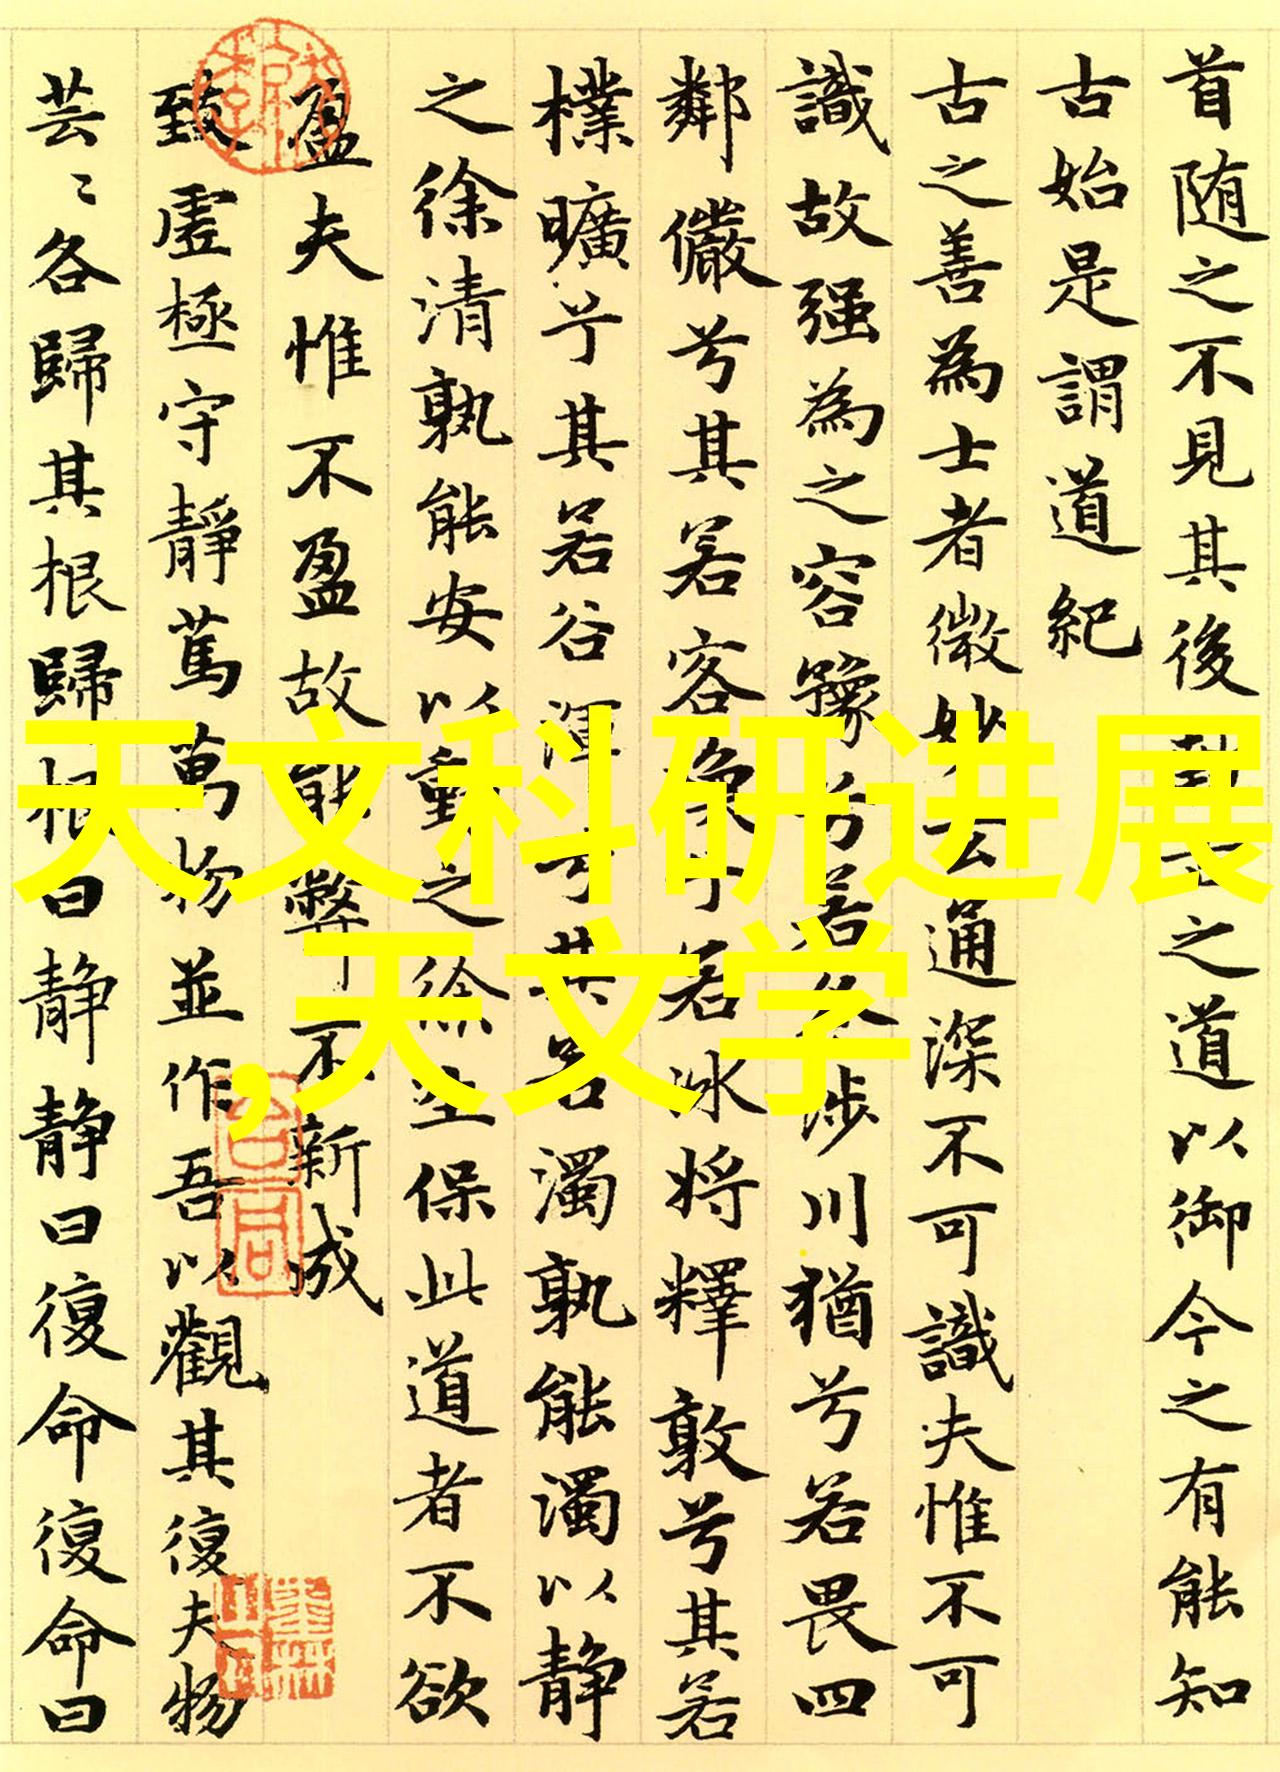 首随之不見其後執古之道以御今之有能知
古始是謂道紀
古之善為士者微妙玄通深不可識夫惟不可
識故强為之容豫兮若冬涉川猶兮若畏四
鄰儼兮其若客渙兮若冰將釋敦兮其若
樸曠兮其若谷渾兮其若濁孰能濁以静
之徐清孰能安以動之徐生保此道者不欲
盈夫惟不盈故能弊不新成
致虚極守靜篤萬物並作吾以觀其復夫物
芸〻各歸其根歸根曰静静曰復命復命曰
天文科研进展
,天文学